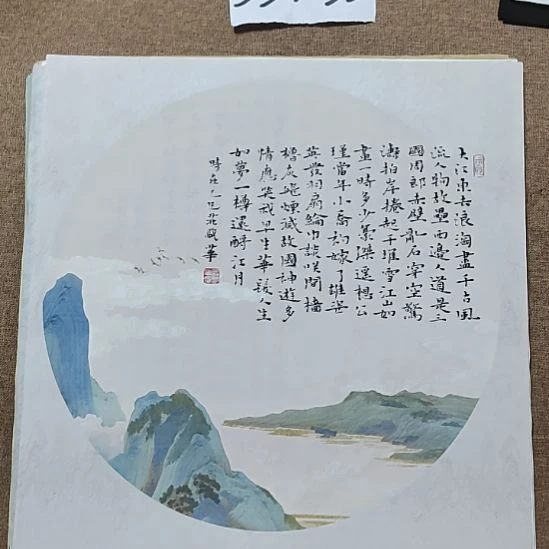 大江東去浪淘盡千古風
流人物故壘西邊人道是三
國周郎赤壁亂石穿空驚
濤拍岸捲起千堆雪江山如
畫一時多少豪傑遙想公
瑾當年小喬初嫁了雄姿
英發羽扇綸巾談笑間檣
櫓灰飛煙滅故國神遊多
情應笑我早生華髮人生
如夢一樽還酹江月
時在乙巳